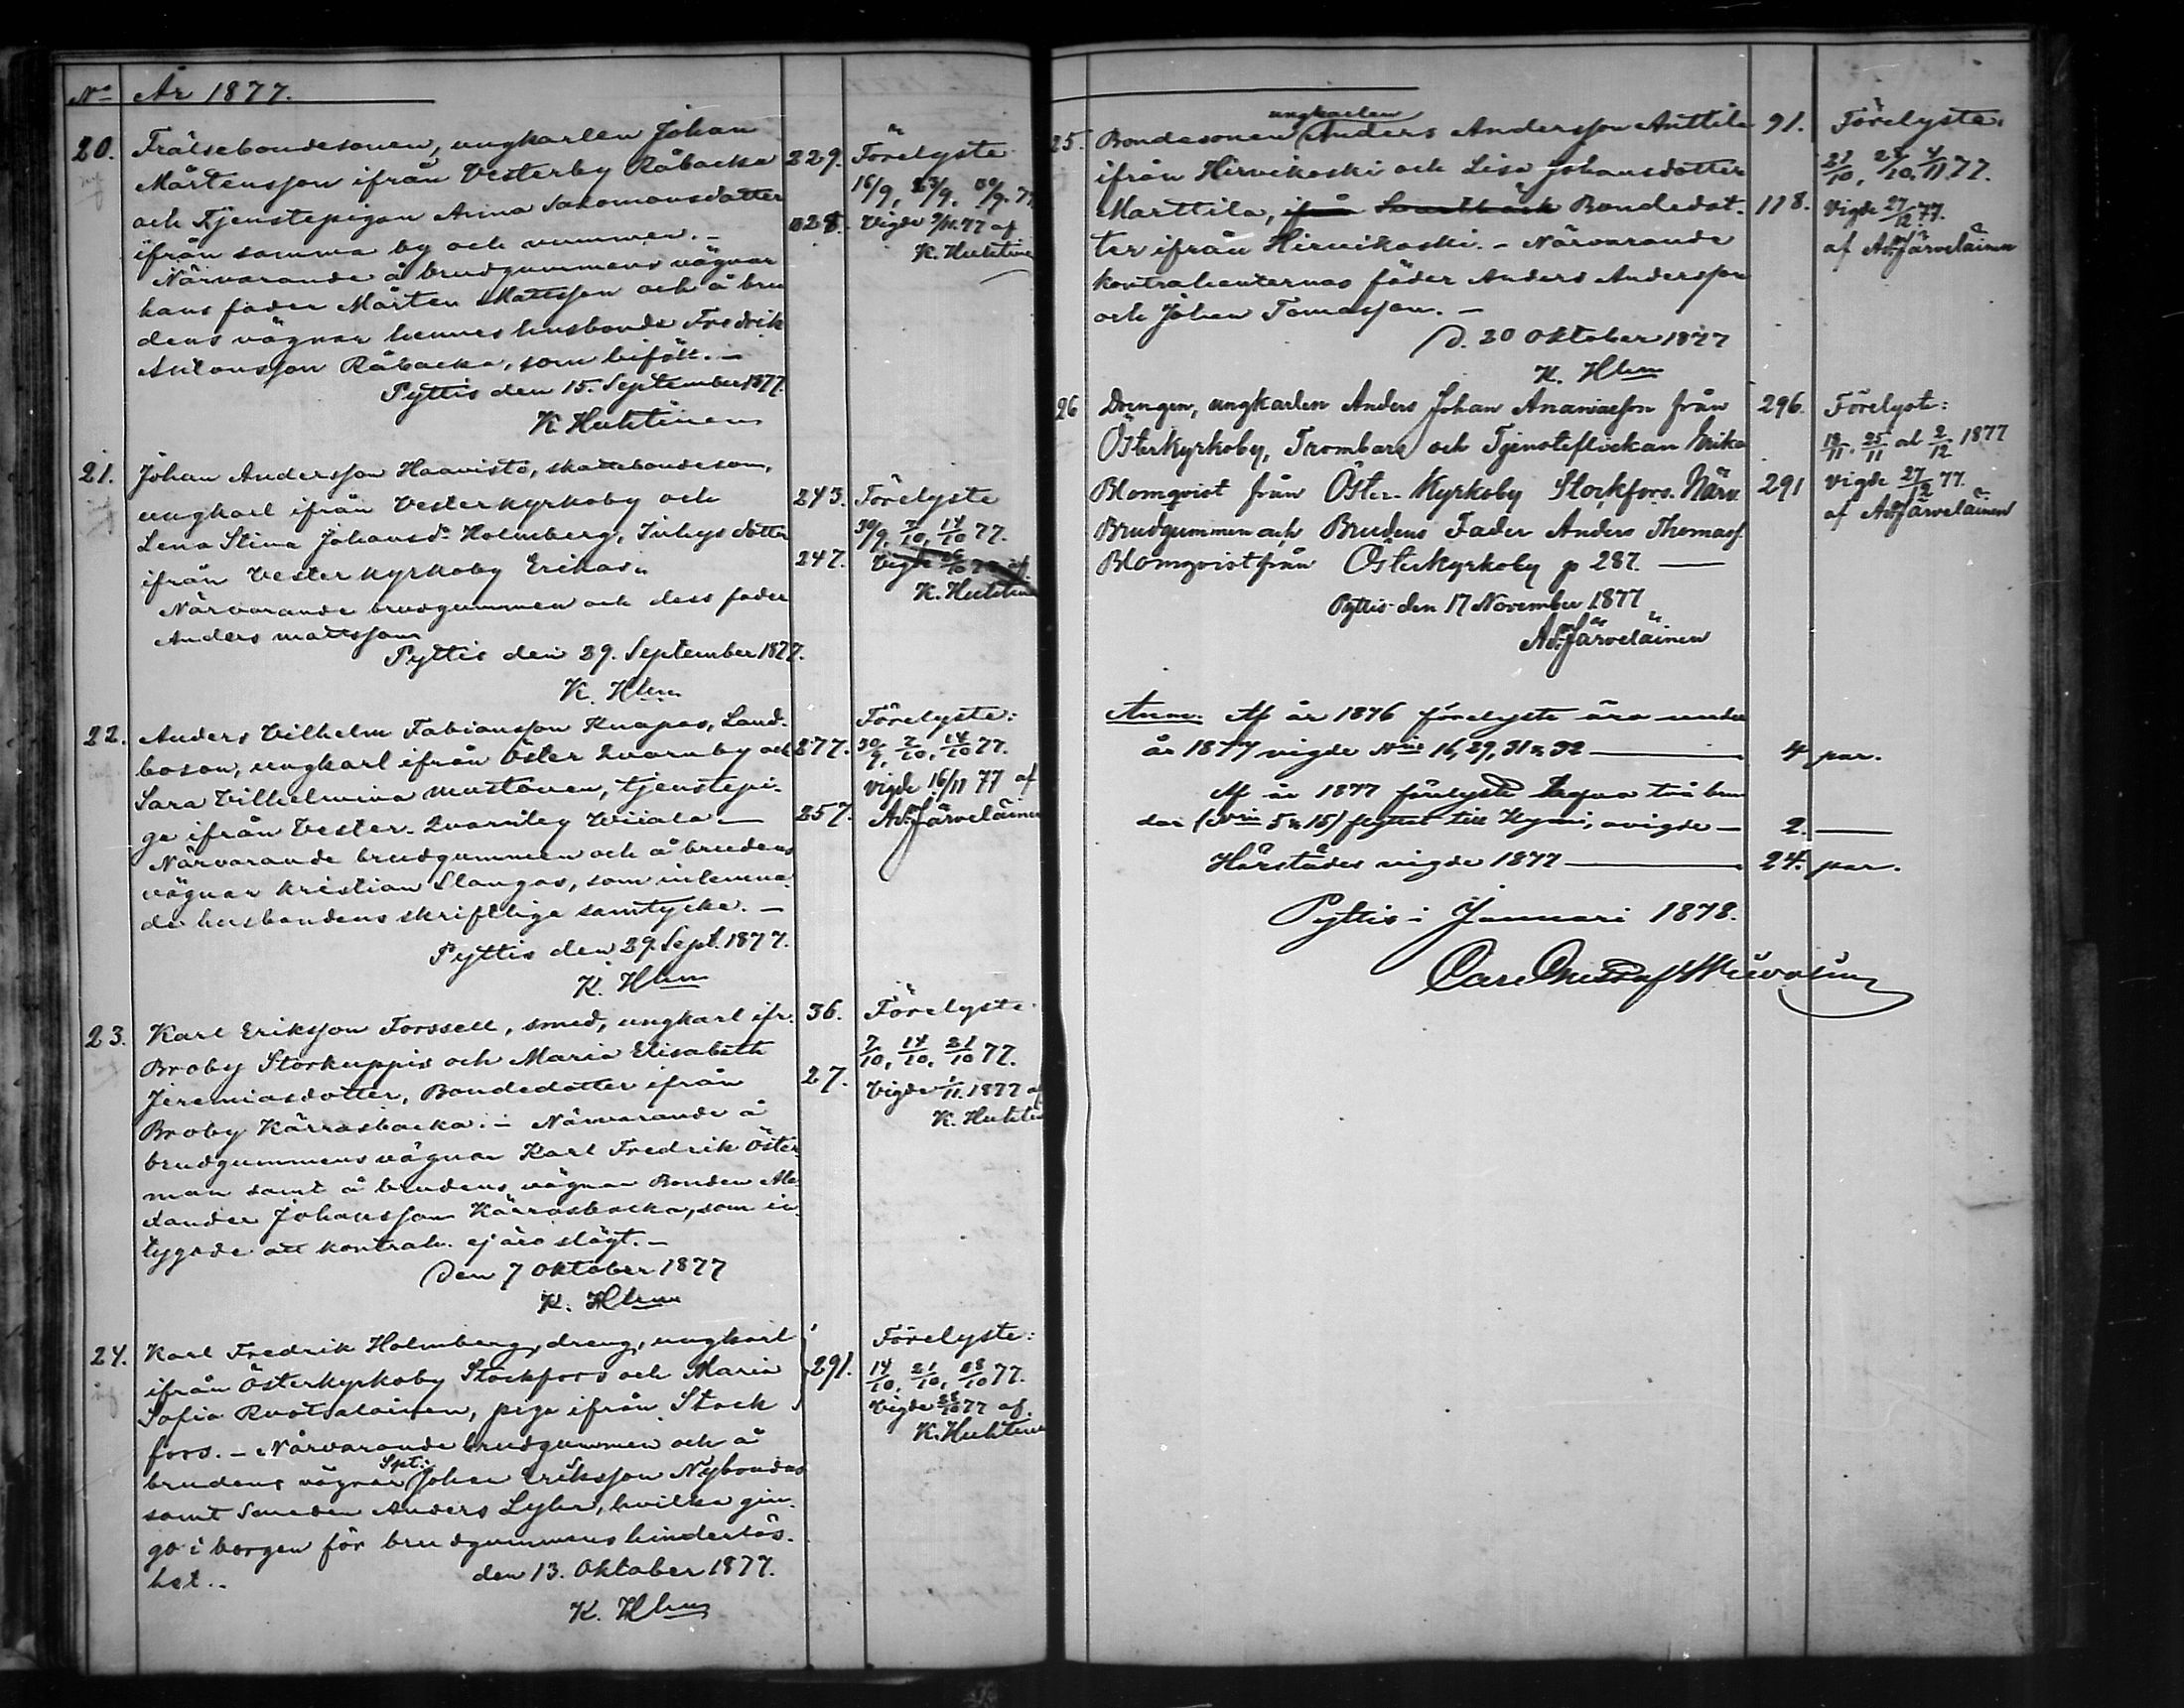 No År 1877.
20. Frälsebondesonen, ungkarlen Johan
Mårtensson ifrån Vesterby Råbacka 229.
och Tjenstepigan Anna Salomonsdotter
ifrån samma by och nummer. –
Närvarande å brudgummens vägnar
hans fader Mårten Mattsson och å bru
dens vägnar hennes husbonde Fredrik
Antonsson Råbacka, som biföll. –
Pyttis den 15. September 1877.
K Huhtinen
Förelyste
16/9, 23/9, 30/9. 77
Vigde 9/11. 77 af
K. Huhtine
21. Johan Andersson Haavisto, skattebondeson,
ungkarl ifrån Vesterkyrkoby och 243.
Lena Stina Johansdr Holmberg, Inhys dotter
ifrån Vesterkyrkoby Erikas. 247.
Närvarande brudgummen och dess fader
Anders Mattsson
Pyttis den 29. September 1877.
K. Hhn
Förelyste
30/9, 7/10, 14/10 77.
K. Huhtine
22. Anders Vilhelm Fabiansson Knapas, Land-
boson, ungkarl ifrån Öster Qvarnby och 277.
Sara Vilhelmina Mustonen, tjenstepi-
ga ifrån Vester-Qvarnby Wiiala – 257.
Närvarande brudgummen och å brudens
vägnar Kristian Slangas, som inlemna-
de husbondens skriftliga samtycke. –
Pyttis den 29. Sept. 1877.
K. Hhn
Förelyste:
30/9, 7/10, 14/10 77.
vigde 16/11 77 af
Ad. Järveläinen
23. Karl Eriksson Forssell, smed, ungkarl ifr. 36.
Broby Storkuppis och Maria Elisabeth
Jeremiasdotter, Bondedotter ifrån 27.
Broby Kärrasbacka. – Närvarande å
brudgummens vägnar Karl Fredrik Öster
man samt å brudens vägnar Bonden Ale
xander Johansson Kärrasbacka, som in
tygade att kontrah. ej äro slägt. –
Den 7 Oktober 1877
K. Hhn
Förelyste
7/10, 14/10, 21/10 77.
Vigde 1/11. 1877 af
K. Huhtin
24. Karl Fredrik Holmberg, dreng, ungkarl
ifrån Österkyrkoby Stockfors och Maria 291.
Sofia Ruotsalainen, piga ifrån Stock
fors. – Närvarande brudgummen och å
brudens vägnar Spt: Johan Eriksson Nybondas
samt Smeden Anders Lyhr, hvilka gin-
go i borgen för brudgummens hinderlös-
het. den 13. Oktober 1877.
K. Hhn
Förelyste:
14/10, 21/10, 28/10 77.
Vigde 28/10 77 af
K. Huhtine
25. Bondesonen ungkarlen Anders Andersson Anttila 91.
ifrån Hirvikoski och Lisa Johansdotter
Marttila, ifrån Bondedot- 118.
ter ifrån Hirvikoski. – Närvarande
kontrahenternas fäder Anders Andersson
och Johan Tomasson. –
D. 20 Oktober 1877
K. Hhn
Förelyste.
21/10, 28/10, 4/11 77.
Vigde 27/12 77.
af Ad. Järveläinen
26 Drengen, ungkarlen Anders Johan Ananiasson från 296.
Österkyrkoby, Trombars och Tjensteflickan Erika
Blomqvist från Öster-Kyrkoby Stockfors. Närv. 291
Brudgummen och Brudens Fader Anders Thomass.
Blomqvist från Österkyrkoby p 287. —
Pyttis den 17 November 1877
Ad. Järveläinen
Förelyste:
18/11, 25/11 och 2/12 1877
vigde 27/12 77.
af Ad. Järveläinen
Anm. Af år 1876 förelyste äro under
år 1877 vigde Nris 16, 29, 31 & 32 — 4 par.
Af år 1877 förelyste hafva två bru
dar (Nris 5 & 15) flyttat till Kymi, ovigde — 2. —
Härstädes vigde 1877 — 24. par.
Pyttis i Januari 1878.